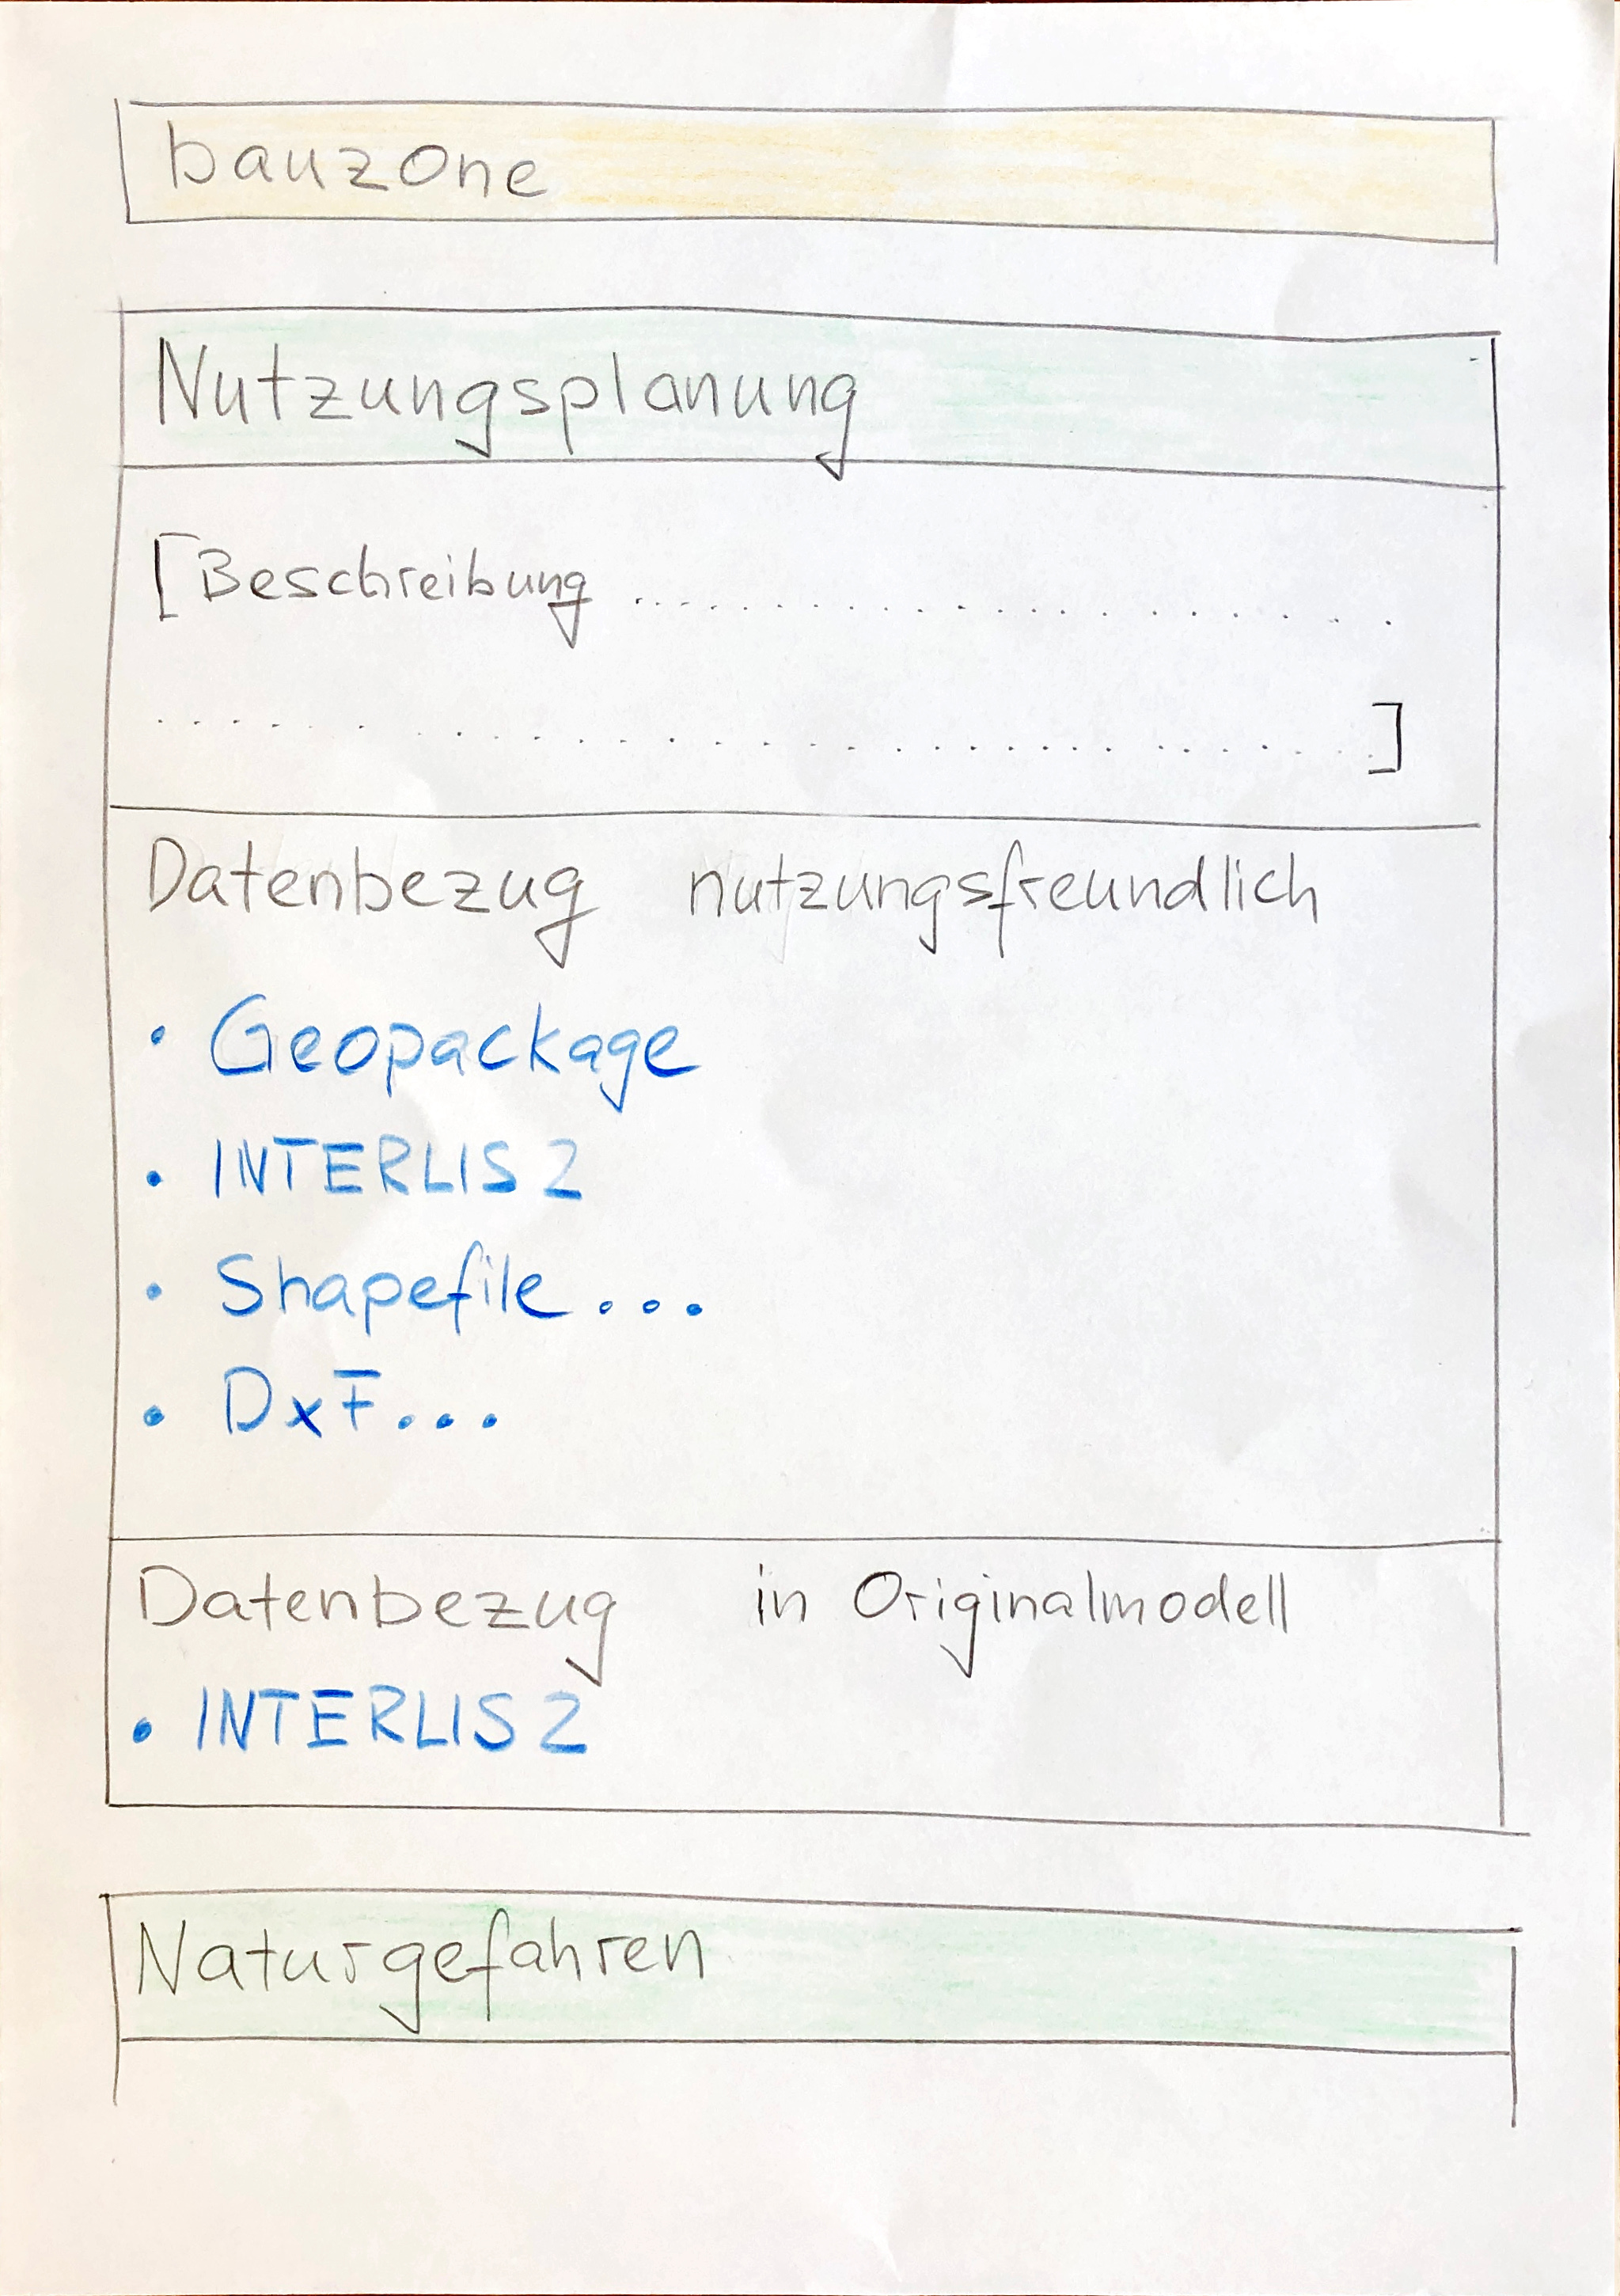 bauzone
Nutzungsplanung
[Beschreibung ......................
...........................]
Datenbezug nutzungsfreundlich
• Geopackage
• INTERLIS 2
• Shapefile...
• DxF...
Datenbezug in Originalmodell
• INTERLIS 2
Naturgefahren